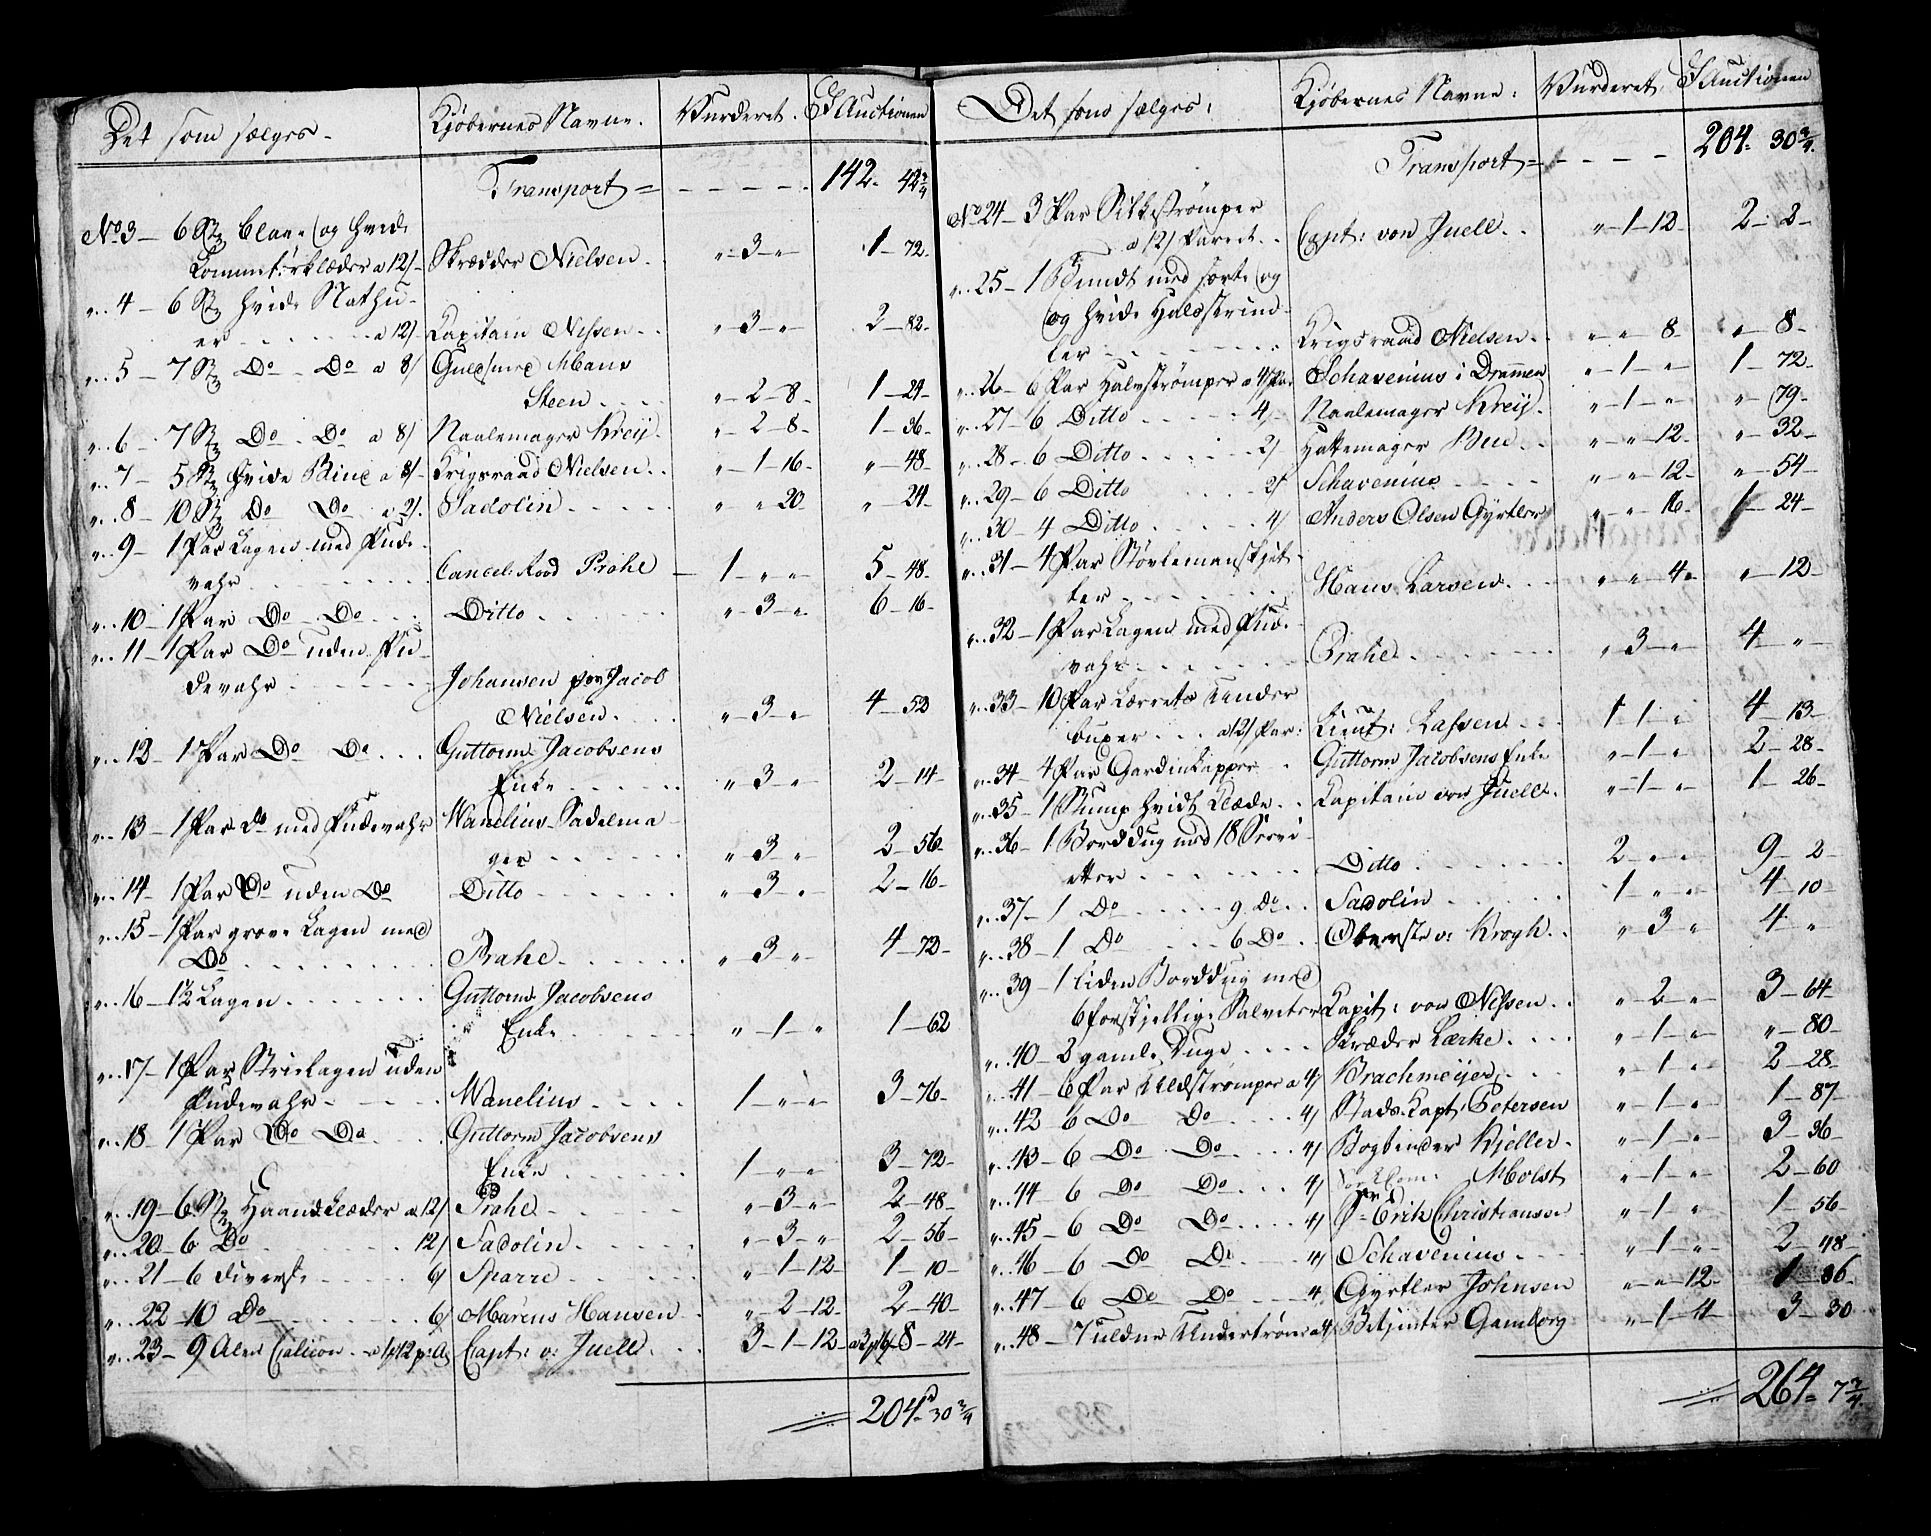 Det som sælges. Kjøbernes Navne. Vurderet. I Auctionen
Transport = - - - - 142 - 42 3/4
No 3 - 6 St. blaae og hvide
Lommetørklæder a 12/- Skrædder Nielsen. " - 3 - " 1 - 72 -
" 4 - 6 St. hvide Nathu-
er - - - a 12/ Kapitain Nissen. " - 3 - " 2 - 82 -
" 5 - 7 St. Do - Do a 8/ Hans
Steen " - 2 - 8 - 1 - 24 -
" 6 - 7 St. Do - Do a 8/ Naalemager Kreij. " - 2 - 8 - 1 - 36 -
" 7 - 5 St. hvide a 8/- Krigsraad Nielsen. " - 1 - 16 - " - 48 -
" 8 - 10 St. Do Do a 2/. Sadolin " " 20 - " - 24 -
" 9 - 1 Par Lagen med Pude-
vahr Cancel: Raad Prahl 1 - " - " 5 - 48 -
" 10 - 1 Par Do - Do Ditto " - 3 - " 6 - 16 -
" 11 - 1 Par Do uden Pu-
devahr Johansen for Jacob
Nielsen. " - 3 - " 4 - 52
" 12 - 1 Par Do Do Guttorm Jacobsens
Enke " - 3 - " 2 - 14 -
" 13 - 1 Par Do med Pudevahr Wanelius Sadelma-
ger " - 3 - " 2 - 56 -
" 14 - 1 Par Do uden Do Ditto " - 3 - " 2 - 16 -
" 15 - 1 Par grove Lagen med
Do Prahl " - 3 - " 4 - 72 -
" 16 - 1 1/2 Lagen Guttorm Jacobsens
Enke " - 1 - " 1 - 62
" 17 - 1 Par Strielagen uden
Pudevahr Wanelius 1 - " - " 3 - 76 -
" 18 - 1 Par Do Do Guttorm Jacobsens
Enke 1 - " - " 3 - 72 -
" 19 - 6 St. Haandklæder a 12/ Prahl " - 3 - " 2 - 48 -
" 20 - 6 Do 12/ Sadolin " - 3 - " 2 - 56 -
" 21 - 6 diverse 6/ Sparre " - 1 - 12 - 1 - 10 -
" 22 - 10 Do 6/ Marcus Hansen " - 2 - 12 - 2 - 40 -
" 23 - 9 Alen Calicon Capt: v: Juell 3 - 1 - 12 - 8 - 24 -
204 - 30 3/4
Det som sælges: Kjøbernes Navne: Vurderet: I Auctionen
Transport = - - - - 204 - 30 3/4
No 24 - 3 Par Silkestrømper
a 12/ Paret Capt: von Juell " - 1 - 12 - 2 - 2 -
" 25 - 1 Bundt med sorte og
og hvide Halsstrim-
ler Krigsraad Nielsen " " 8 - " - 8 -
" 26 - 6 Par Halvstrømper a 4/ Par Schavenius i Drammen " - 1 - " 1 - 72 -
" 27 - 6 Ditto 4/ Naalemager Kreij. " - 1 - " " - 79 -
" 28 - 6 Ditto 2/ Hattemager " " 12 - " - 32 -
" 29 - 6 Ditto 2/ Schavenius " " 12 - " - 54 -
" 30 - 4 Ditto 4/ Anders Olsen Gyrtler " " 16 - 1 - 24 -
" 31 - 4 Par Støvlemanskjet-
ter Hans Larsen " " 4 - " - 12 -
" 32 - 1 Par Lagen med Pude-
vahr Prahl " - 3 - " 4 - "
" 33 - 10 Par Lærrets Under-
buxer a 12/ Par: Lieut: Lassen 1 - 1 - " 4 - 13 -
" 34 - 4 Par Gardinkapper Guttorm Jacobsens Enke " - 1 - " 2 - 28 -
" 35 - 1 Stump hvidt Klæde Kapitain von Juell. " - 1 - " 1 - 26 -
" 36 - 1 Borddug med 18 Servi-
etter Ditto 2 - " - " 9 - 2 -
" 37 - 1 Do 9 Do Sadolin 1 - " - " 4 - 10 -
" 38 - 1 Do 6 Do Oberste v: Krogh " - 3 - " 4 - "
" 39 - 1 liden Borddug med
6 forskjellige Salvetter Kapit: von Nissen " - 2 - " 3 - 64 -
" 40 - 2 gamle Duge Skræder Lærke " - 1 - " " - 80 -
" 41 - 6 Par Uldstrømper a 4/ Brachmeijer " - 1 - " 2 - 28 -
" 42 - 6 Do Do 4/ Stads Kapt: Petersen " - 1 - " 1 - 87 -
" 43 - 6 Do Do 4/ Bogbinder Kjeller. " - 1 - " 3 - 36 -
" 44 - 6 Do Do 4/ Moest " - 1 - " 2 - 60
" 45 - 6 Do Do 4/ Erik Christiansen " - 1 - " 1 - 56 -
" 46 - 6 Do Do 4/ Schavenius " - 1 - " 2 - 48 -
" 47 - 6 Do Do 4 Gyrtler Johnsen " " 12 - 1 - 36 -
" 48 - 7 uldne Undertrøier a 4/ Betjenter Gamborg " - 1 - 4 3 - 30
264 - 7 3/4